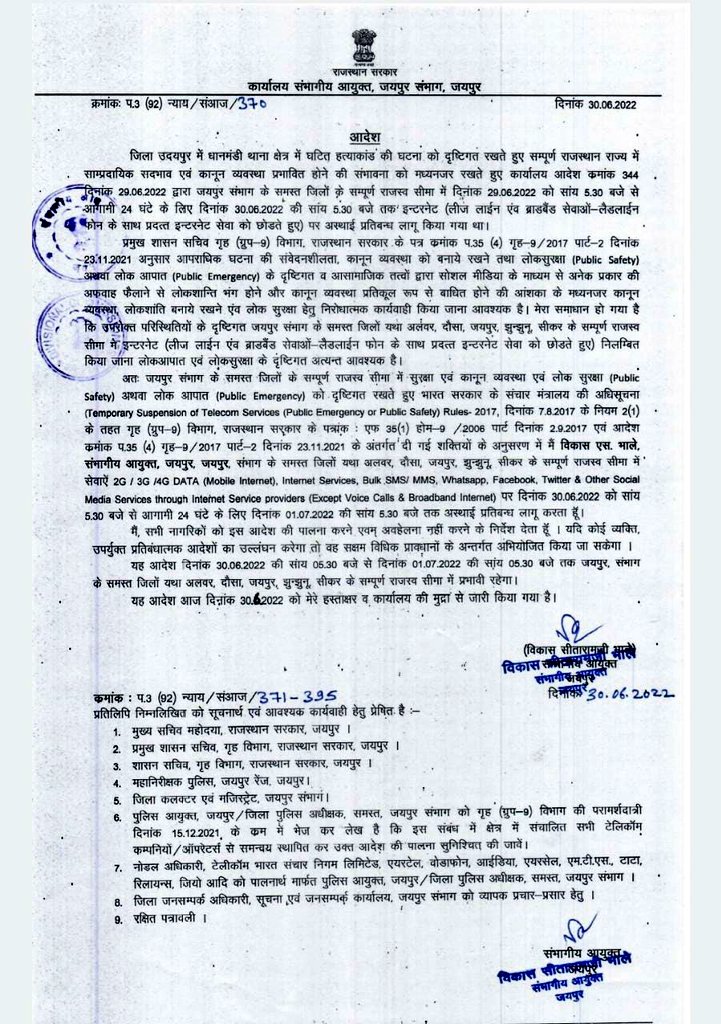 राजस्थान सरकार
कार्यालय संभागीय आयुक्त, जयपुर संभाग, जयपुर
क्रमांकः प.3 (92) न्याय/संआज/370 दिनांक 30.06.2022
आदेश
जिला उदयपुर में धानमंडी थाना क्षेत्र में घटित हत्याकांड की घटना को दृष्टिगत रखते हुए सम्पूर्ण राजस्थान राज्य में
साम्प्रदायिक सदभाव एवं कानून व्यवस्था प्रभावित होने की संभावना को मध्यनजर रखते हुए कार्यालय आदेश कमांक 344
दिनांक 29.06.2022 द्वारा जयपुर संभाग के समस्त जिलों के सम्पूर्ण राजस्व सीमा में दिनांक 29.06.2022 को सांय 5.30 बजे से
आगामी 24 घंटे के लिए दिनांक 30.06.2022 की सांय 5.30 बजे तक इन्टरनेट (लीज लाईन एंव ब्राडबैंड सेवाओं-लैडलाईन
फोन के साथ प्रदत्त इन्टरनेट सेवा को छोडते हुए) पर अस्थाई प्रतिबन्ध लागू किया गया था।
प्रमुख शासन सचिव गृह (ग्रुप-9) विभाग, राजस्थान सरकार के पत्र कमांक प.35 (4) गृह-9/2017 पार्ट-2 दिनांक
23.11.2021 अनुसार आपराधिक घटना की संवेदनशीलता, कानून व्यवस्था को बनाये रखने तथा लोकसुरक्षा (Public Safety)
अथवा लोक आपात (Public Emergency) के दृष्टिगत व आसामाजिक तत्वों द्वारा सोशल मीडिया के माध्यम से अनेक प्रकार की
अफवाह फैलाने से लोकशान्ति भंग होने और कानून व्यवस्था प्रतिकूल रूप से बाधित होने की आंशका के मध्यनजर कानून
व्यवस्था, लोकशांति बनाये रखने एंव लोक सुरक्षा हेतु निरोधात्मक कार्यवाही किया जाना आवश्यक है। मेरा समाधान हो गया है
कि उपरोक्त परिस्थितियों के दृष्टिगत जयपुर संभाग के समस्त जिलों यथा अलवर, दौसा, जयपुर, झुन्झुनू, सीकर के सम्पूर्ण राजस्व
सीमा में इन्टरनेट (लीज लाईन एंव ब्राडबैंड सेवाओं-लैडलाईन फोन के साथ प्रदत्त इन्टरनेट सेवा को छोडते हुए) निलम्बित
किया जाना लोकआपात एवं लोकसुरक्षा के दृष्टिगत अत्यन्त आवश्यक है।
अतः जयपुर संभाग के समस्त जिलों के सम्पूर्ण राजस्व सीमा में सुरक्षा एवं कानून व्यवस्था एवं लोक सुरक्षा (Public
Safety) अथवा लोक आपात (Public Emergency) को दृष्टिगत रखते हुए भारत सरकार के संचार मंत्रालय की अधिसूचना
(Temporary Suspension of Telecom Services (Public Emergency or Public Safety) Rules- 2017, दिनांक 7.8.2017 के नियम 2(1)
के तहत गृह (ग्रुप-9) विभाग, राजस्थान सरकार के पत्रांक : एफ 35(1) होम-9 /2006 पार्ट दिनांक 2.9.2017 एवं आदेश
कमांक प.35 (4) गृह-9/2017 पार्ट-2 दिनांक 23.11.2021 के अंतर्गत दी गई शक्तियों के अनुसरण में मैं विकास एस. भाले,
संभागीय आयुक्त, जयपुर, जयपुर, संभाग के समस्त जिलों यथा अलवर, दौसा, जयपुर, झुन्झुनू, सीकर के सम्पूर्ण राजस्व सीमा में
सेवाऐं 2G / 3G /4G DATA (Mobile Internet), Internet Services, Bulk SMS/ MMS, Whatsapp, Facebook, Twitter & Other Social
Media Services through Internet Service providers (Except Voice Calls & Broadband Internet) पर दिनांक 30.06.2022 को सांय
5.30 बजे से आगामी 24 घंटे के लिए दिनांक 01.07.2022 की सांय 5.30 बजे तक अस्थाई प्रतिबन्ध लागू करता हूँ।
मैं, सभी नागरिकों को इस आदेश की पालना करने एवम् अवहेलना नहीं करने के निर्देश देता हूँ । यदि कोई व्यक्ति,
उपर्युक्त प्रतिबंधात्मक आदेशों का उल्लंघन करेगा तो वह सक्षम विधिक प्रावधानों के अन्तर्गत अभियोजित किया जा सकेगा ।
यह आदेश दिनांक 30.06.2022 की सांय 05.30 बजे से दिनांक 01.07.2022 की सांय 05.30 बजे तक जयपुर, संभाग
के समस्त जिलों यथा अलवर, दौसा, जयपुर, झुन्झुनू, सीकर के सम्पूर्ण राजस्व सीमा में प्रभावी रहेगा।
यह आदेश आज दिनांक 30.6.2022 को मेरे हस्ताक्षर व कार्यालय की मुद्रा से जारी किया गया है।
(विकास सीतारामजी भाले)
विकास सीतारामजी भाले
संभागीय आयुक्त
संभागीय आयुक्त
जयपुर
जयपुर
दिनांकः 30.06.2022
क्रमांक : प.3 (92) न्याय/संआज/371-395
प्रतिलिपि निम्नलिखित को सूचनार्थ एवं आवश्यक कार्यवाही हेतु प्रेषित है :-
1. मुख्य सचिव महोदया, राजस्थान सरकार, जयपुर ।
2. प्रमुख शासन सचिव, गृह विभाग, राजस्थान सरकार, जयपुर ।
3. शासन सचिव, गृह विभाग, राजस्थान सरकार, जयपुर ।
4. महानिरीक्षक पुलिस, जयपुर रेंज, जयपुर।
5. जिला कलक्टर एवं मजिस्ट्रेट, जयपुर संभाग।
6. पुलिस आयुक्त, जयपुर/जिला पुलिस अधीक्षक, समस्त, जयपुर संभाग को गृह (ग्रुप-9) विभाग की परामर्शदात्री
दिनांक 15.12.2021 के क्रम में भेज कर लेख है कि इस संबंध में क्षेत्र में संचालित सभी टेलिकॉम
कम्पनियों/ऑपरेटर्स से समन्वय स्थापित कर उक्त आदेश की पालना सुनिश्चित की जावें।
7. नोडल अधिकारी, टेलीकॉम भारत संचार निगम लिमिटेड, एयरटेल, वोडाफोन, आईडिया, एयरसेल, एम.टी.एस., टाटा,
रिलायन्स, जियो आदि को पालनार्थ मार्फत पुलिस आयुक्त, जयपुर/जिला पुलिस अधीक्षक, समस्त, जयपुर संभाग ।
8. जिला जनसम्पर्क अधिकारी, सूचना एवं जनसम्पर्क कार्यालय, जयपुर संभाग को व्यापक प्रचार-प्रसार हेतु ।
9. रक्षित पत्रावली ।
संभागीय आयुक्त
जयपुर
विकास सीतारामजी भाले
संभागीय आयुक्त
जयपुर